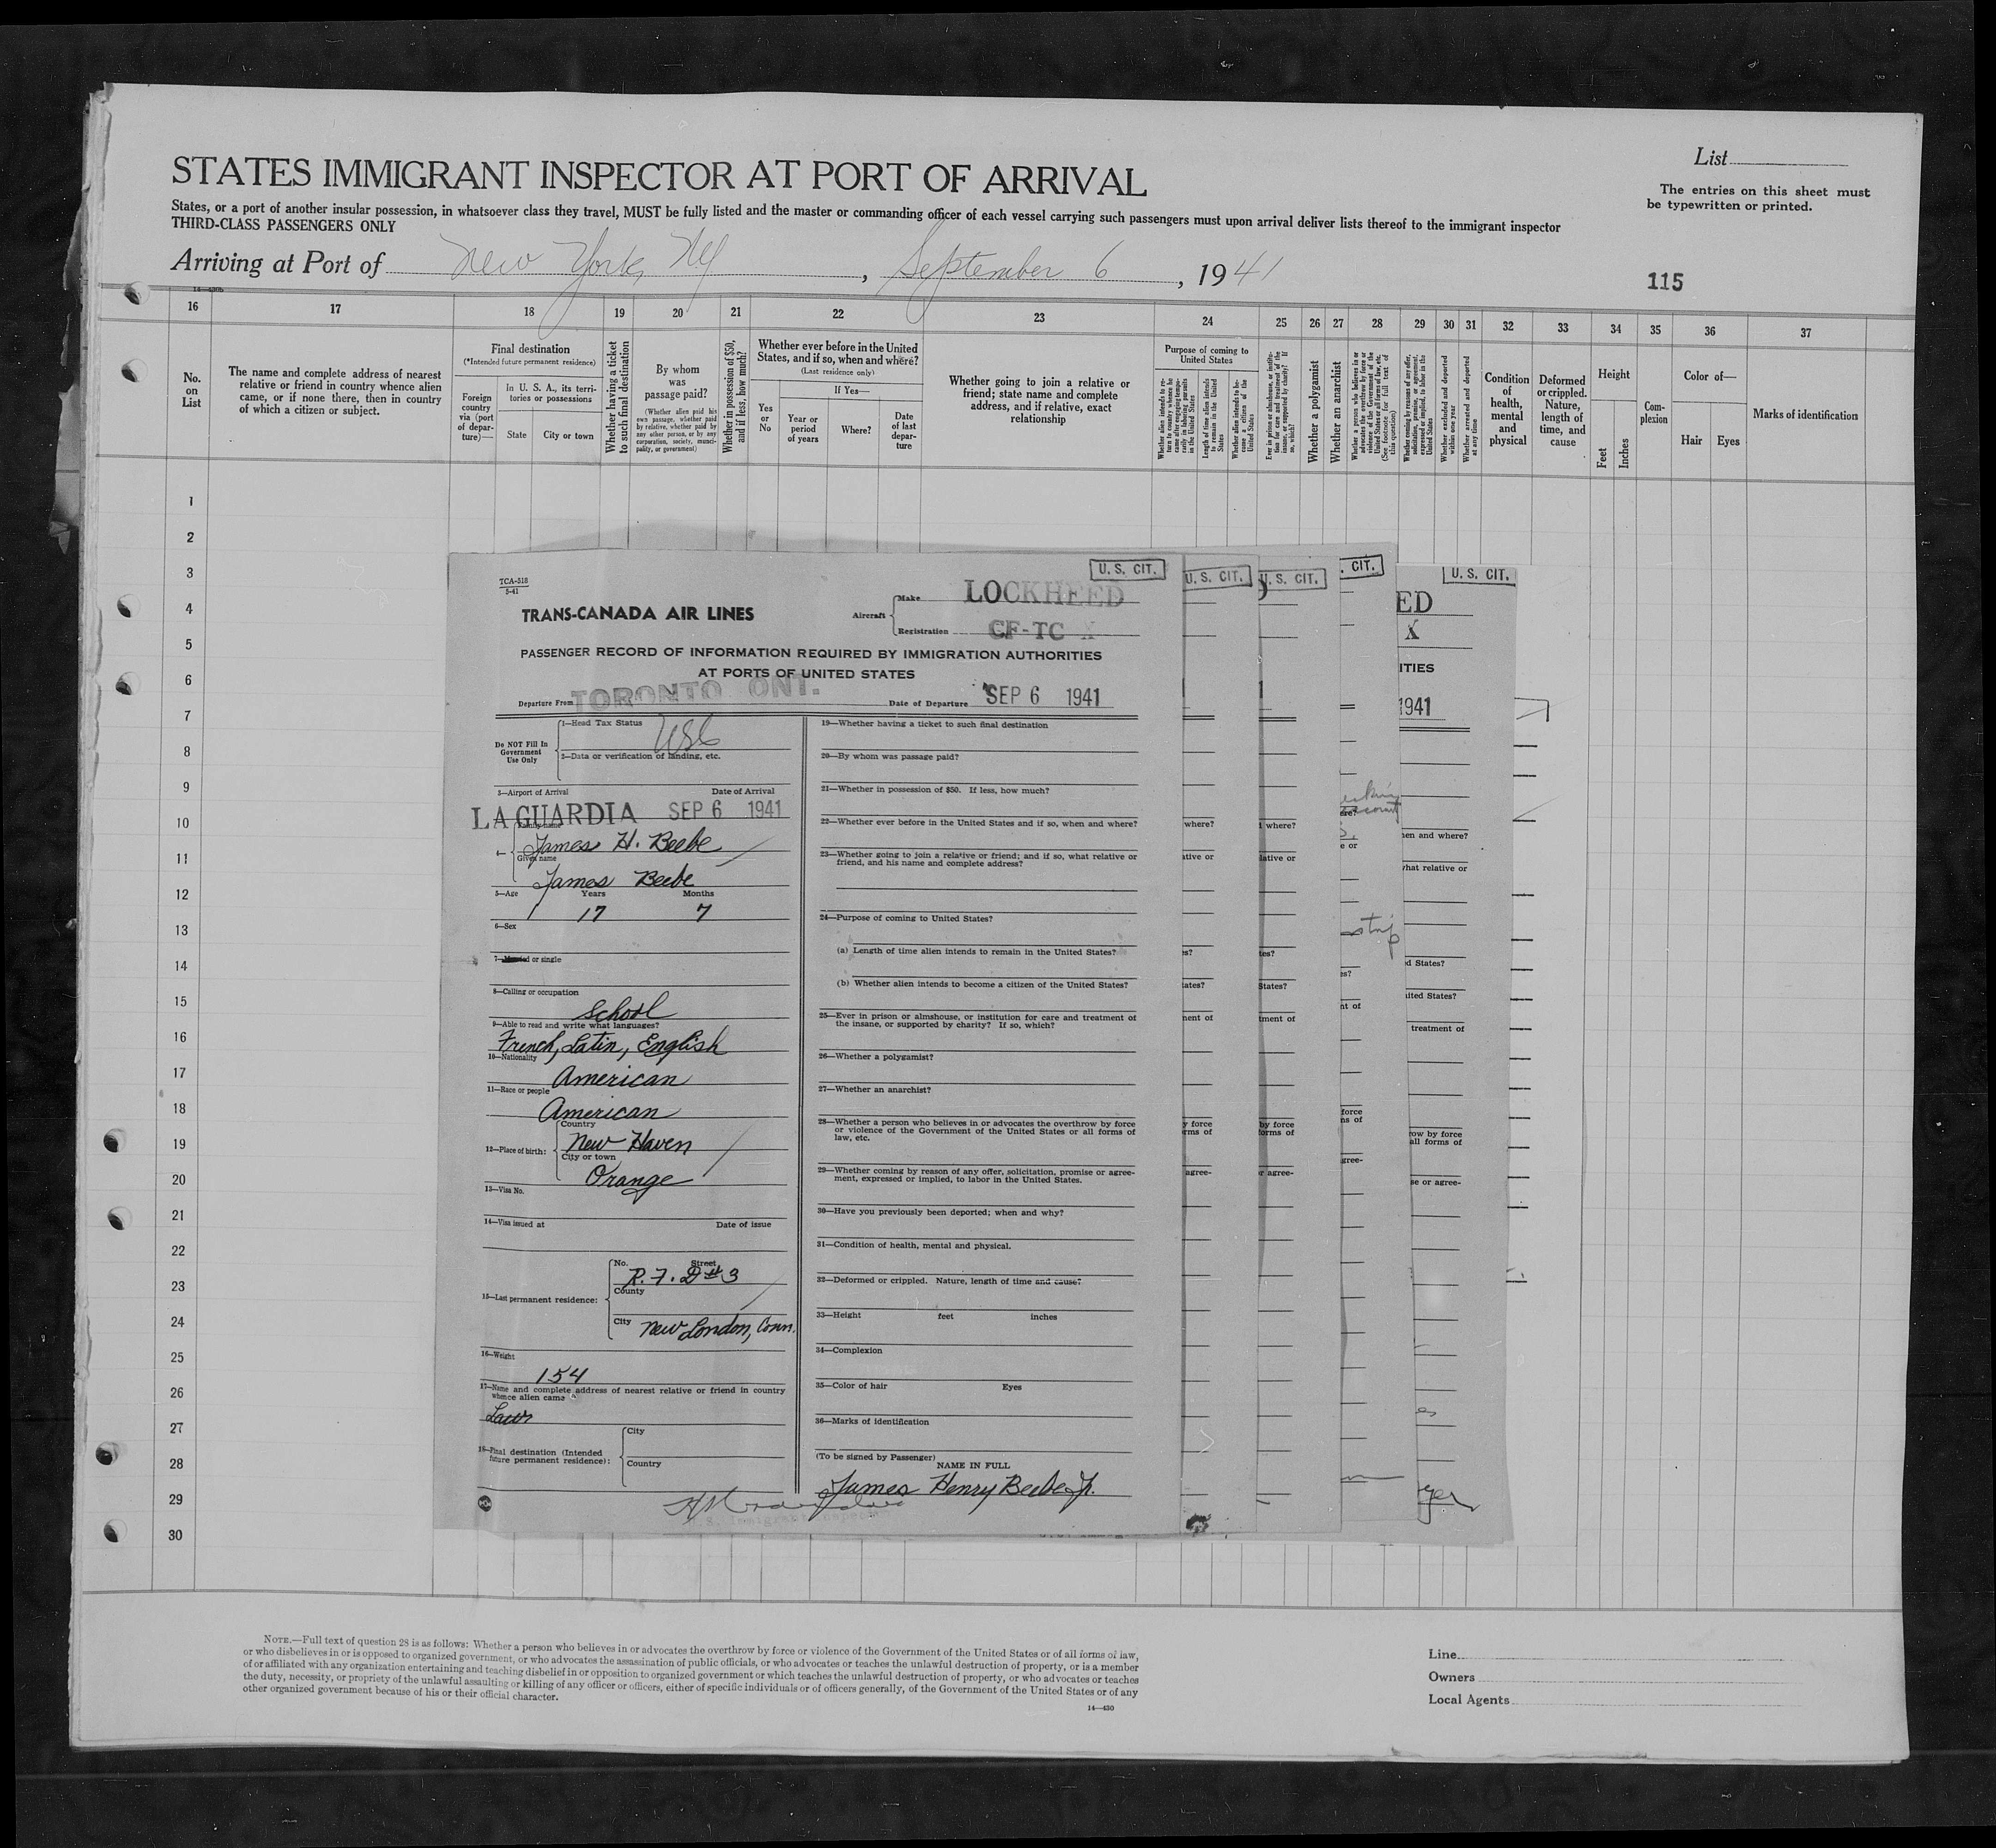 STATES IMMIGRANT INSPECTOR AT PORT OF ARRIVAL
List
The entries on this sheet must
be typewritten or printed.
States, or a port of another insular possession, in whatsoever class they travel, MUST be fully listed and the master or commanding officer of each vessel carrying such passengers must upon arrival deliver lists thereof to the immigrant inspector
THIRD-CLASS PASSENGERS ONLY
Arriving at Port of New York, NY, September 6, 1941
115
16 17 18 19 20 21 22 23 24 25 26 27 28 29 30 31 32 33 34 35 36 37
No.
on
List
The name and complete address of nearest
relative or friend in country whence alien
came, or if none there, then in country
of which a citizen or subject.
Final destination
(*Intended future permanent residence)
Foreign
country
via (port
of depar-
ture)—
In U. S. A., its terri-
tories or possessions
State
City or town
Whether having a ticket
to such final destination
By whom
was
passage paid?
(Whether alien paid his
own passage, whether paid
by relative, whether paid by
any other person, or by any
corporation, society, munici-
pality, or government)
Whether in possession of $50,
and if less, how much?
Whether ever before in the United
States, and if so, when and where?
(Last residence only)
Yes
or
No
If Yes—
Year or
period
of years
Where?
Date
of last
depar-
ture
Whether going to join a relative or
friend; state name and complete
address, and if relative, exact
relationship
Purpose of coming to
United States
Length of time alien intends
to remain in the United
States
Whether alien intends to be-
come a citizen of the
United States
Whether a polygamist
Whether an anarchist
Whether excluded and deported
within one year
Whether arrested and deported
at any time
Condition
of
health,
mental
and
physical
Deformed
or crippled.
Nature,
length of
time, and
cause
Height
Feet
Inches
Com-
plexion
Color of—
Hair
Eyes
Marks of identification
1
2
3
4
5
6
7
8
9
10
11
12
13
14
15
16
17
18
19
20
21
22
23
24
25
26
27
28
29
30
TCA-518
5-41
U. S. CIT.
TRANS-CANADA AIR LINES
Aircraft
Make LOCKHEED
Registration CF-TC X
PASSENGER RECORD OF INFORMATION REQUIRED BY IMMIGRATION AUTHORITIES
AT PORTS OF UNITED STATES
Departure From TORONTO ONT.
Date of Departure SEP 6 1941
Do NOT Fill In
Government
Use Only
1—Head Tax Status USC
2—Data or verification of landing, etc.
3—Airport of Arrival Date of Arrival
LA GUARDIA SEP 6 1941
4—
Family name
James H. Beebe
Given name
James Beebe
5—Age Years Months
17 7
6—Sex
7—Married or single
8—Calling or occupation
School
9—Able to read and write what languages?
French, Latin, English
10—Nationality
American
11—Race or people
American
12—Place of birth:
Country
New Haven
City or town
Orange
13—Visa No.
14—Visa issued at Date of issue
15—Last permanent residence:
No. Street
R.F.D #3
County
City New London, Conn.
16—Weight
154
17—Name and complete address of nearest relative or friend in country
whence alien came
18—Final destination (Intended
future permanent residence):
City
Country
19—Whether having a ticket to such final destination
20—By whom was passage paid?
21—Whether in possession of $50. If less, how much?
22—Whether ever before in the United States and if so, when and where?
23—Whether going to join a relative or friend; and if so, what relative or
friend, and his name and complete address?
24—Purpose of coming to United States?
(a) Length of time alien intends to remain in the United States?
(b) Whether alien intends to become a citizen of the United States?
25—Ever in prison or almshouse, or institution for care and treatment of
the insane, or supported by charity? If so, which?
26—Whether a polygamist?
27—Whether an anarchist?
28—Whether a person who believes in or advocates the overthrow by force
or violence of the Government of the United States or all forms of
law, etc.
29—Whether coming by reason of any offer, solicitation, promise or agree-
ment, expressed or implied, to labor in the United States.
30—Have you previously been deported; when and why?
31—Condition of health, mental and physical.
32—Deformed or crippled. Nature, length of time and cause?
33—Height feet inches
34—Complexion
35—Color of hair Eyes
36—Marks of identification
(To be signed by Passenger)
NAME IN FULL
James Henry Beebe Jr.
U. S. CIT.
where?
ative or
es?
tates?
ment of
y force
rms of
agree-
U. S. CIT.
d where?
lative or
tes?
States?
tment of
by force
forms of
r agree-
. CIT.
e or
strip
es?
nt of
force
ns of
gree-
U. S. CIT.
ED
X
ITIES
1941
hen and where?
what relative or
d States?
ited States?
treatment of
row by force
all forms of
se or agree-
NOTE.—Full text of question 28 is as follows: Whether a person who believes in or advocates the overthrow by force or violence of the Government of the United States or of all forms of law,
or who disbelieves in or is opposed to organized government, or who advocates the assassination of public officials, or who advocates or teaches the unlawful destruction of property, or is a member
of or affiliated with any organization entertaining and teaching disbelief in or opposition to organized government or which teaches the unlawful destruction of property, or who advocates or teaches
the duty, necessity, or propriety of the unlawful assaulting or killing of any officer or officers, either of specific individuals or of officers generally, of the Government of the United States or of any
other organized government because of his or their official character.
14—430
Line
Owners
Local Agents